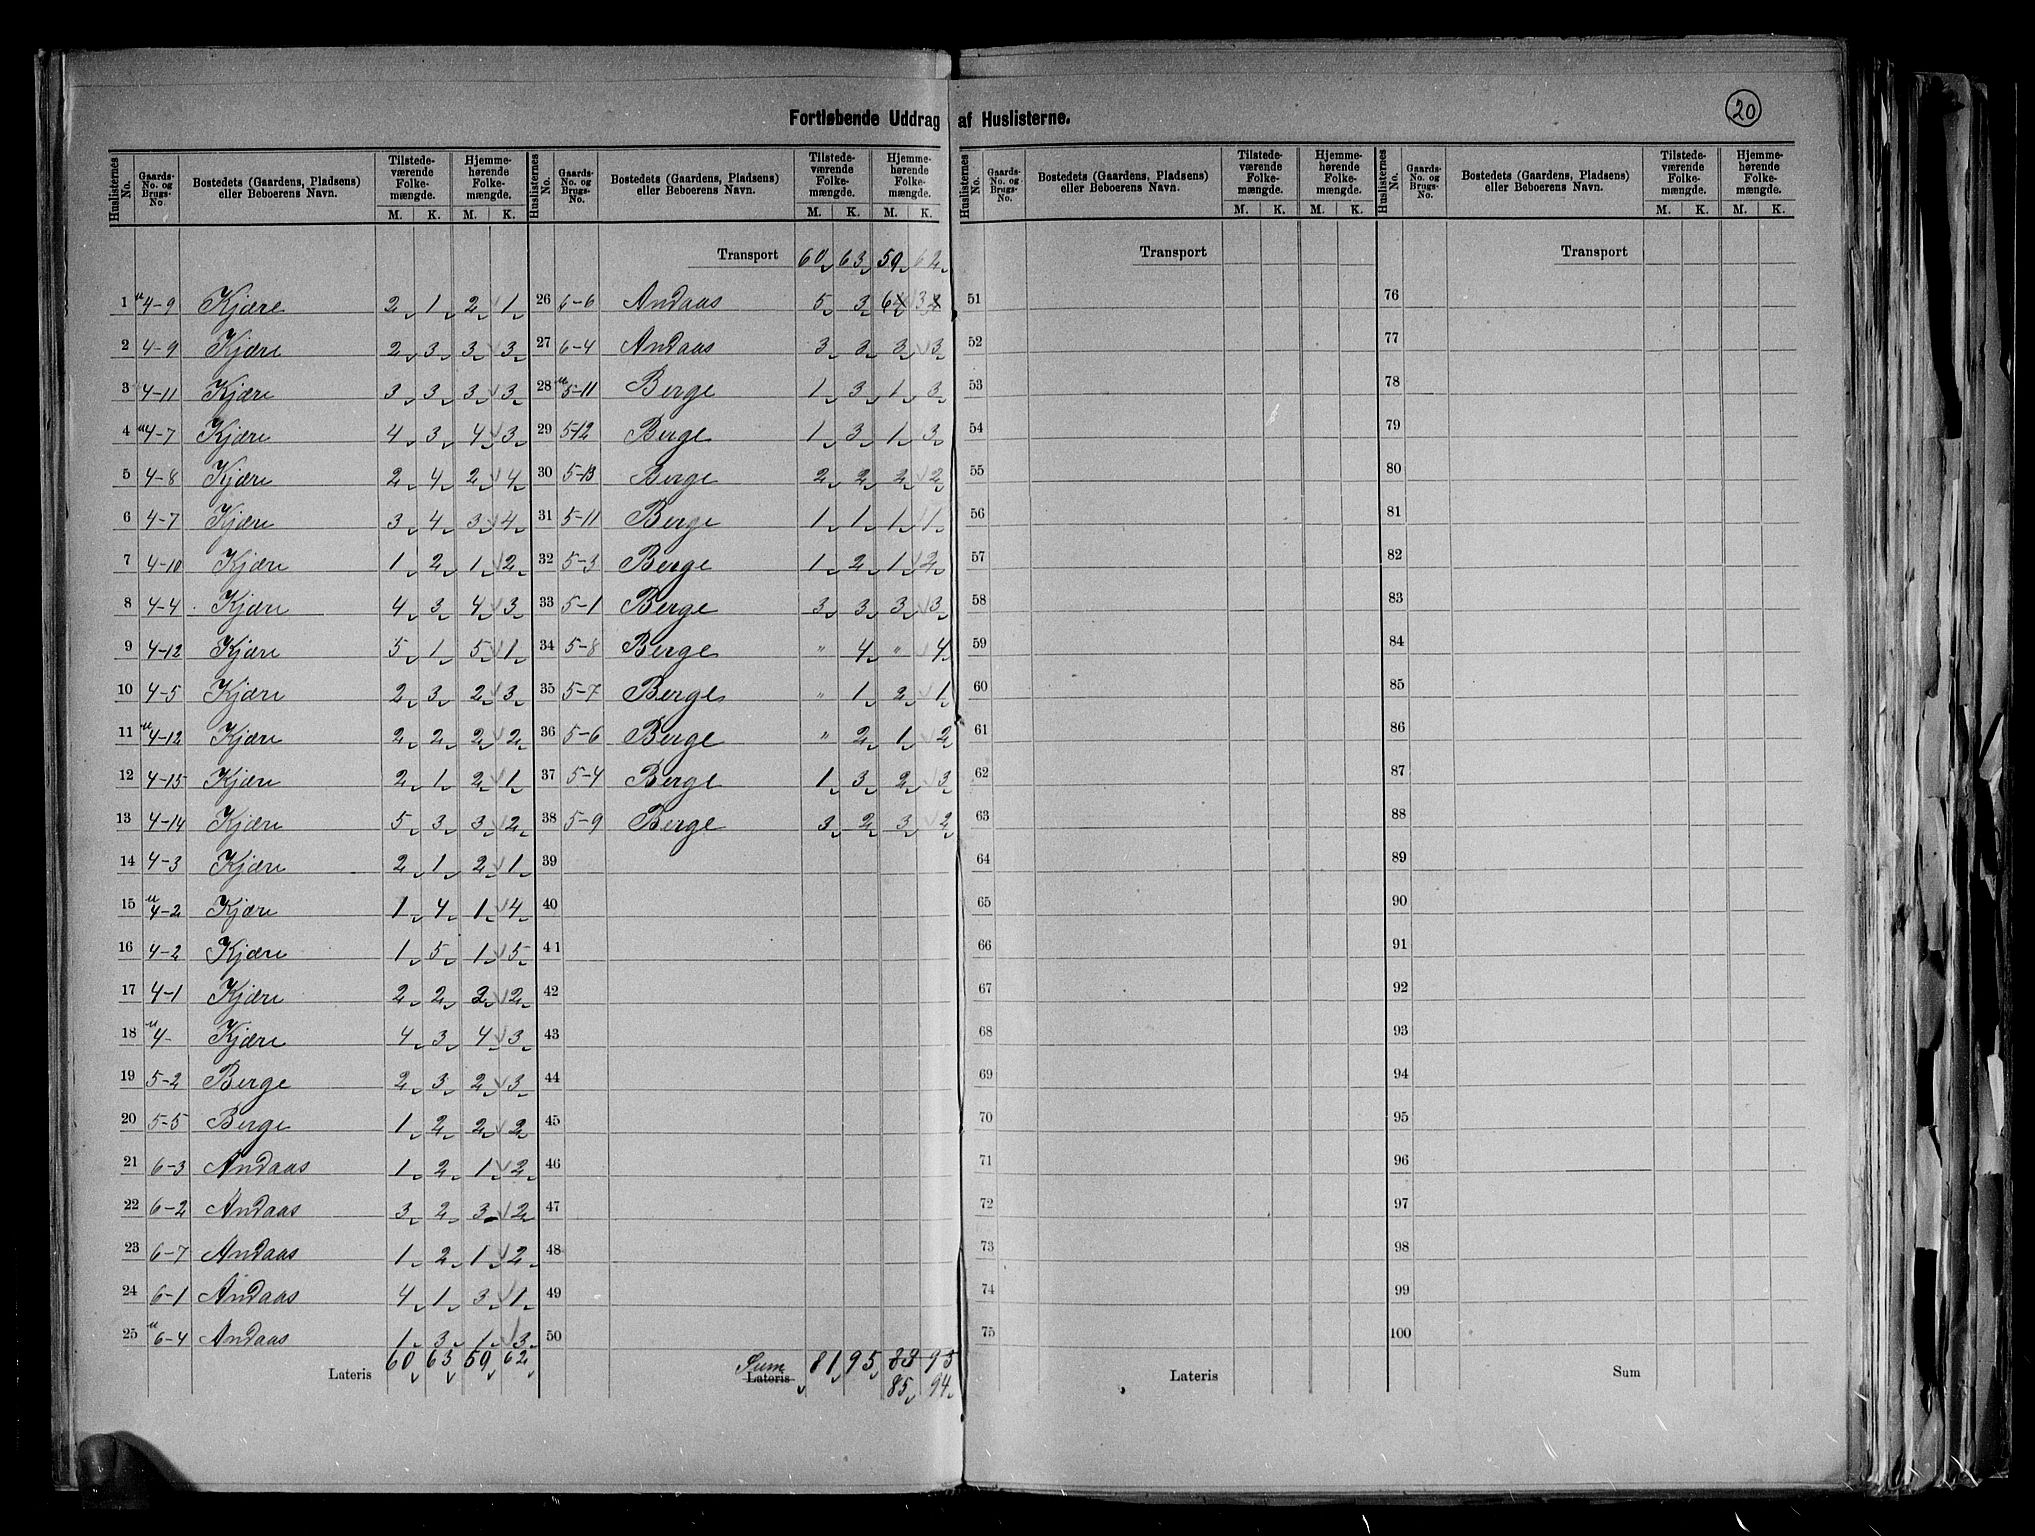 Fortløbende Uddrag af Huslisterne.
20
Huslisternes No. Gaards-No. og Brugs-No. Bostedets (Gaardens, Pladsens) eller Beboerens Navn. Tilstedeværende Folkemængde. M. K. Hjemmehørende Folkemængde. M. K.
1 4-9 Kjære 2 1 2 1
2 4-9 Kjære 2 3 3 3
3 4-11 Kjære 3 3 3 3
4 4-7 Kjære 4 3 4 3
5 4-8 Kjære 2 4 2 4
6 4-7 Kjære 3 4 3 4
7 4-10 Kjære 1 2 1 2
8 4-4 Kjære 4 3 4 3
9 4-12 Kjære 5 1 5 1
10 4-5 Kjære 2 3 2 3
11 4-12 Kjære 2 2 2 2
12 4-15 Kjære 2 1 2 1
13 4-14 Kjære 5 3 3 2
14 4-3 Kjære 2 1 2 1
15 4-2 Kjære 1 4 1 4
16 4-2 Kjære 1 5 1 5
17 4-1 Kjære 2 2 2 2
18 4- Kjære 4 3 4 3
19 5-2 Berge 2 3 2 3
20 5-5 Berge 1 2 2 2
21 6-3 Andaas 1 2 1 2
22 6-2 Andaas 3 2 3 2
23 6-7 Andaas 1 2 1 2
24 6-1 Andaas 4 1 3 1
25 6-4 Andaas 1 3 1 3
Lateris 60 63 59 62
Huslisternes No. Gaards-No. og Brugs-No. Bostedets (Gaardens, Pladsens) eller Beboerens Navn. Tilstedeværende Folkemængde. M. K. Hjemmehørende Folkemængde. M. K.
Transport 60 63 59 62
26 6-6 Andaas 5 3 6 3
27 6-4 Andaas 3 3 3 3
28 5-11 Berge 1 3 1 3
29 5-12 Berge 1 3 1 3
30 5-13 Berge 2 2 2 2
31 5-11 Berge 1 1 1 1
32 5-3 Berge 1 2 1 2
33 5-1 Berge 3 3 3 3
34 5-8 Berge " 4 " 4
35 5-7 Berge " 1 2 1
36 5-6 Berge " 2 1 2
37 5-4 Berge 1 3 2 3
38 5-9 Berge 3 2 3 2
39
40
41
42
43
44
45
46
47
48
49
50
Sum Lateris 81 95 83 95
85 94
Huslisternes No. Gaards-No. og Brugs-No. Bostedets (Gaardens, Pladsens) eller Beboerens Navn. Tilstedeværende Folkemængde. M. K. Hjemmehørende Folkemængde. M. K.
Transport
51
52
53
54
55
56
57
58
59
60
61
62
63
64
65
66
67
68
69
70
71
72
73
74
75
Lateris
Huslisternes No. Gaards-No. og Brugs-No. Bostedets (Gaardens, Pladsens) eller Beboerens Navn. Tilstedeværende Folkemængde. M. K. Hjemmehørende Folkemængde. M. K.
Transport
76
77
78
79
80
81
82
83
84
85
86
87
88
89
90
91
92
93
94
95
96
97
98
99
100
Sum